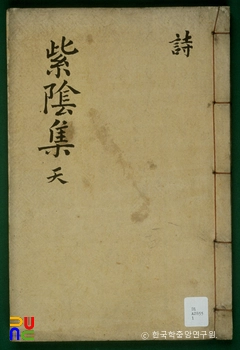 詩
紫陰集 天
© 한국학중앙연구원